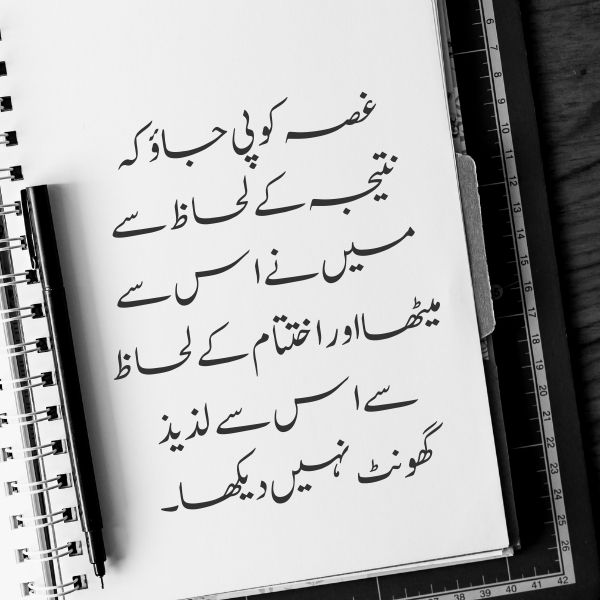 غصہ کو پی جاؤ کہ
نتیجہ کے لحاظ سے
میں نے اس سے
میٹھا اور اختتام کے لحاظ
سے اس سے لذیذ
گھونٹ نہیں دیکھا۔
6
7
8
9
10
11
12
13
14
15
16
17
18
19
20
21
22
23
24
25
26
38 39 40 41 42